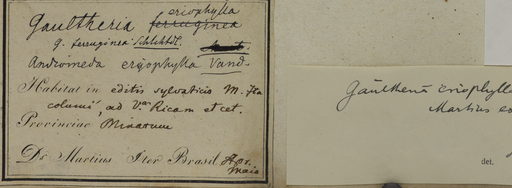 eriophylla
Gaultheria ferruginea
G. ferruginea Schlchtdl.
Andromeda eriophylla Vand.
Habitat in editis sylvaticis M. Ita
columi, ad V. Ricam et cet.
Provinciae Minarum
Dr. Martius Iter Brasil. Apr.
Maio
Gaultheria eriophylla
Martius
det.